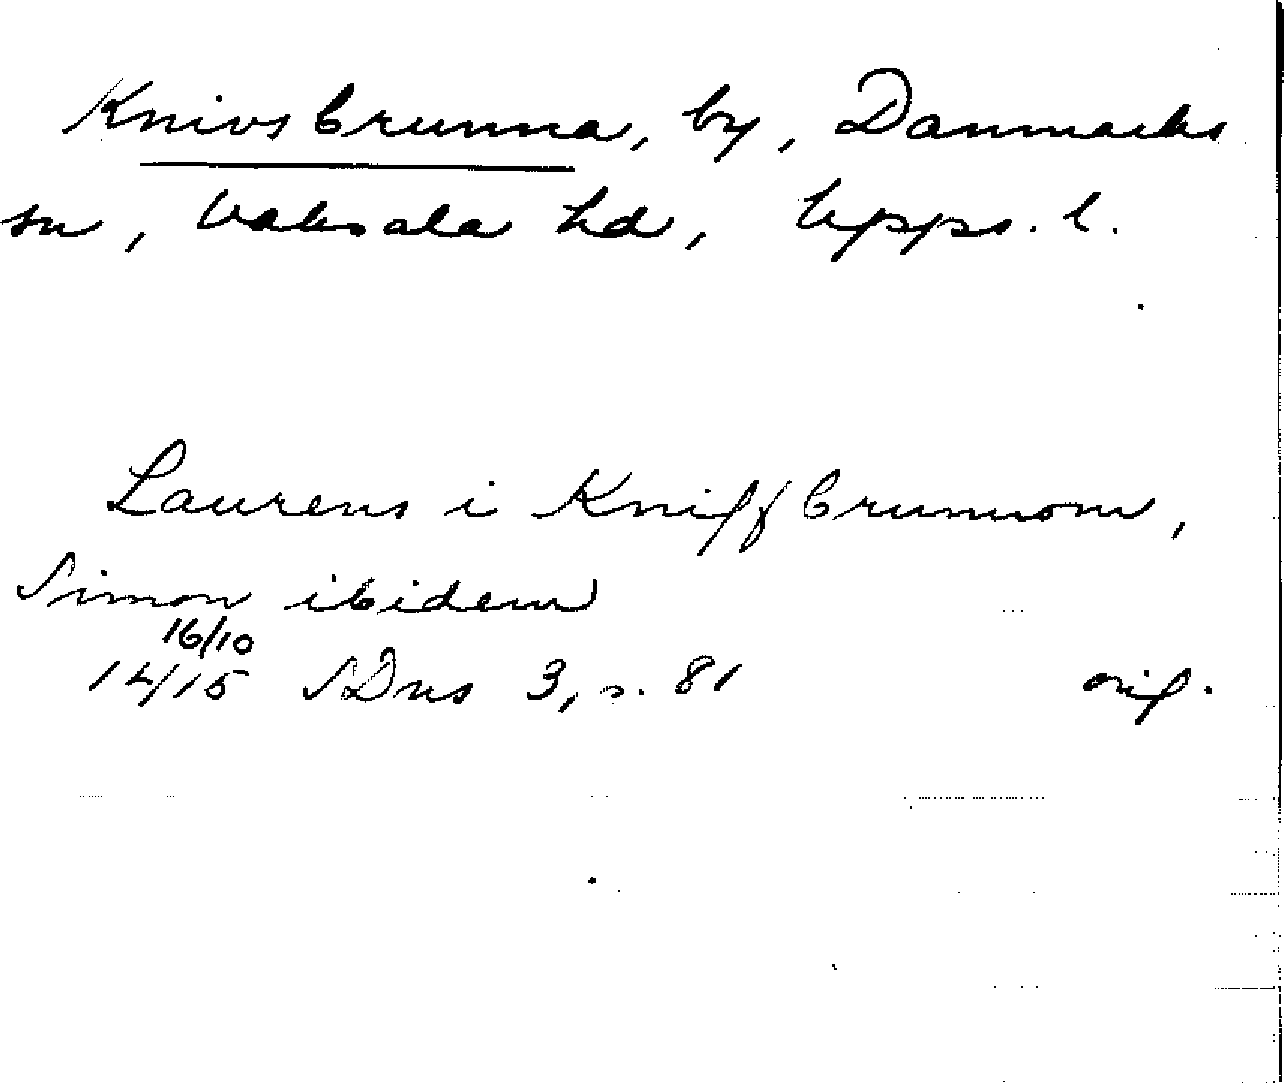 Knivsbrunna, by, Danmarks
sn, Vaksala hd, Upps. l.
Laurens i Kniffbrunnom,
Simon ibidem
16/10
1415 SDns 3, s. 81 orig.